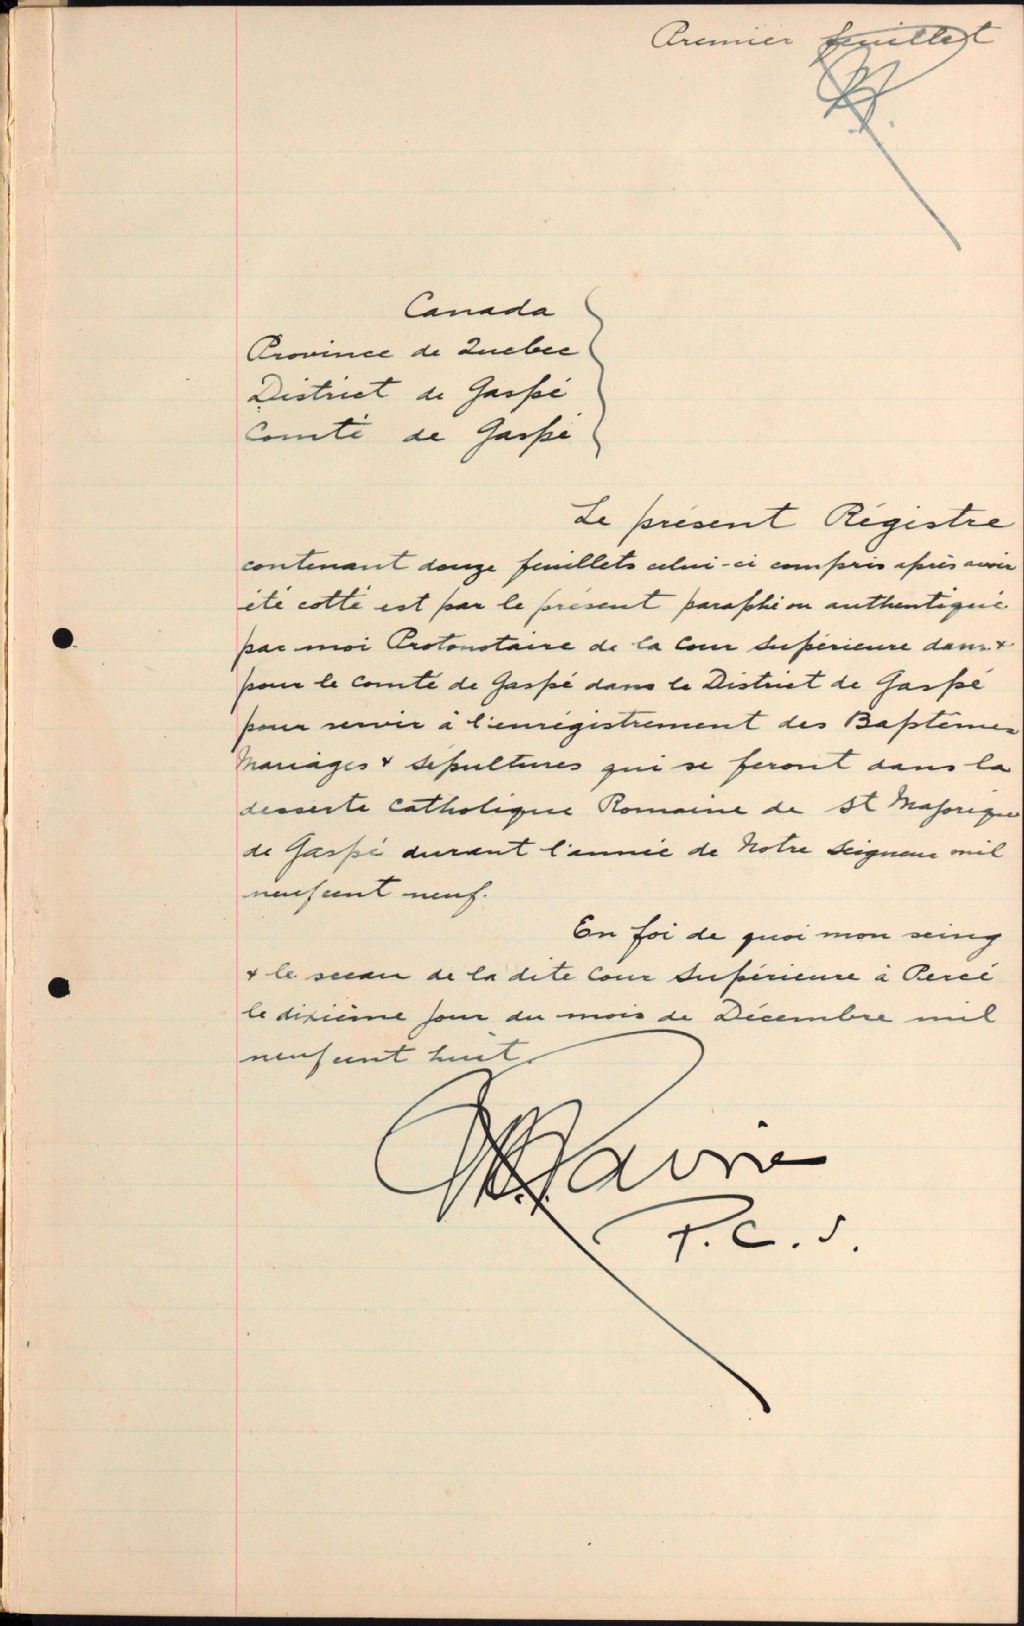 Premier feuillet
Canada
Province de Quebec
District de Gaspé
Comté de Gaspé
Le présent Régistre
contenant douze feuillets celui-ci compris après avoir
été cotté est par le présent paraphé ou authentiqué
par moi Protonotaire de la Cour Supérieure dans &
pour le Comté de Gaspé dans le District de Gaspé
pour servir à l'enrégistrement des Baptêmes
Mariages & Sépultures qui se feront dans la
desserte Catholique Romaine de St Majorique
de Gaspé durant l'année de Notre Seigneur mil
neufcent neuf.
En foi de quoi mon seing
& le sceau de la dite Cour Supérieure à Percé
le dixième jour du mois de Décembre mil
neufcent huit.
P.C.S.